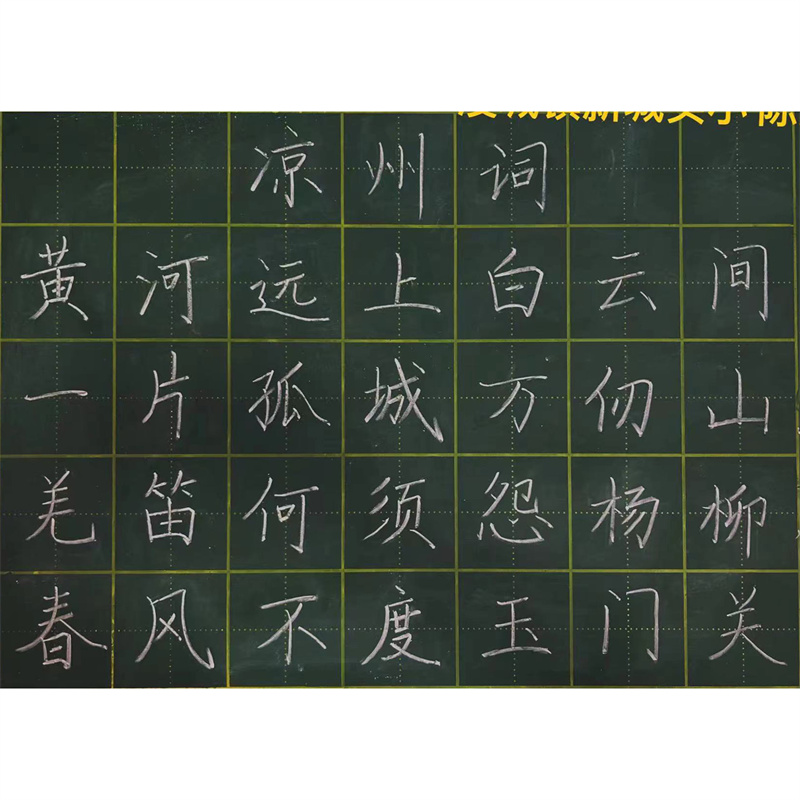 凉州词
黄河远上白云间
一片孤城万仞山
羌笛何须怨杨柳
春风不度玉门关